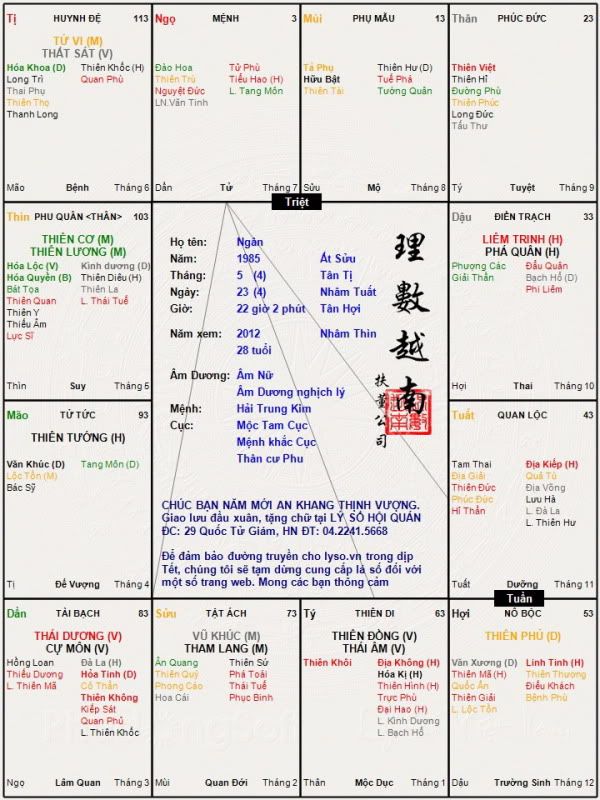 Tị HUYNH ĐỆ 113
TỬ VI (M)
THẤT SÁT (V)
Hóa Khoa (D) Thiên Khốc (H)
Long Trì Quan Phù
Thai Phụ
Thiên Thọ
Thanh Long
Mão Bệnh Tháng 6
Ngọ MỆNH 3
Đào Hoa Tử Phù
Thiên Trù Tiểu Hao (H)
Nguyệt Đức L. Tang Môn
LN.Văn Tinh
Dần Tử Tháng 7
Mùi PHỤ MẪU 13
Tả Phụ Thiên Hư (D)
Hữu Bật Tuế Phá
Thiên Tài Tướng Quân
Sửu Mộ Tháng 8
Thân PHÚC ĐỨC 23
Thiên Việt
Thiên Hỉ
Đường Phù
Thiên Phúc
Long Đức
Tấu Thư
Tý Tuyệt Tháng 9
Triệt
Thìn PHU QUÂN <THÂN> 103
THIÊN CƠ (M)
THIÊN LƯƠNG (M)
Hóa Lộc (V) Kình dương (D)
Hóa Quyền (B) Thiên Diêu (H)
Bát Tọa Thiên La
Thiên Quan L. Thái Tuế
Thiên Y
Thiếu Âm
Lực Sĩ
Thìn Suy Tháng 5
Họ tên: Ngàn
Năm: 1985 Ất Sửu
Tháng: 5 (4) Tân Tị
Ngày: 23 (4) Nhâm Tuất
Giờ: 22 giờ 2 phút Tân Hợi
Năm xem: 2012 Nhâm Thìn
28 tuổi
Âm Dương: Âm Nữ
Âm Dương nghịch lý
Mệnh: Hải Trung Kim
Cục: Mộc Tam Cục
Mệnh khắc Cục
Thân cư Phu
理數越南
扶董公司
CHÚC BẠN NĂM MỚI AN KHANG THỊNH VƯỢNG.
Giao lưu đầu xuân, tặng chữ tại LÝ SỐ HỘI QUÁN
ĐC: 29 Quốc Tử Giám, HN ĐT: 04.2241.5668
Để đảm bảo đường truyền cho lyso.vn trong dịp
Tết, chúng tôi sẽ tạm dừng cung cấp lá số đối với
một số trang web. Mong các bạn thông cảm
Dậu ĐIỀN TRẠCH 33
LIÊM TRINH (H)
PHÁ QUÂN (H)
Phượng Các Đẩu Quân
Giải Thần Bạch Hổ (D)
Phi Liêm
Hợi Thai Tháng 10
Mão TỬ TỨC 93
THIÊN TƯỚNG (H)
Văn Khúc (D) Tang Môn (D)
Lộc Tồn (M)
Bác Sỹ
Tị Đế Vượng Tháng 4
Tuất QUAN LỘC 43
Tam Thai Địa Kiếp (H)
Địa Giải Quả Tú
Thiên Đức Địa Võng
Phúc Đức Lưu Hà
Hỉ Thần L. Đà La
L. Thiên Hư
Tuất Dưỡng Tháng 11
Dần TÀI BẠCH 83
THÁI DƯƠNG (V)
CỰ MÔN (V)
Hồng Loan Đà La (H)
Thiếu Dương Hỏa Tinh (D)
L. Thiên Mã Cô Thần
Thiên Không
Kiếp Sát
Quan Phủ
L. Thiên Khốc
Ngọ Lâm Quan Tháng 3
Sửu TẬT ÁCH 73
VŨ KHÚC (M)
THAM LANG (M)
Ân Quang Thiên Sứ
Thiên Quý Phá Toái
Phong Cáo Thái Tuế
Hoa Cái Phục Binh
Mùi Quan Đới Tháng 2
Tý THIÊN DI 63
THIÊN ĐỒNG (V)
THÁI ÂM (V)
Thiên Khôi Địa Không (H)
Hóa Kị (H)
Thiên Hình (H)
Trực Phù
Đại Hao (H)
L. Kình Dương
L. Bạch Hổ
Thân Mộc Dục Tháng 1
Tuần
Hợi NÔ BỘC 53
THIÊN PHỦ (D)
Văn Xương (D) Linh Tinh (H)
Thiên Mã (H) Thiên Thượng
Quốc Ấn Điếu Khách
Thiên Giải Bệnh Phù
L. Lộc Tồn
Dậu Trường Sinh Tháng 12